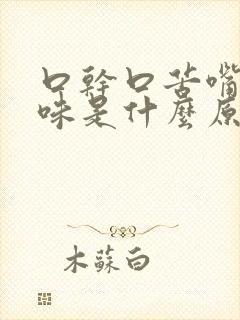 口幹口苦嘴
味是什麼原
木蘇白